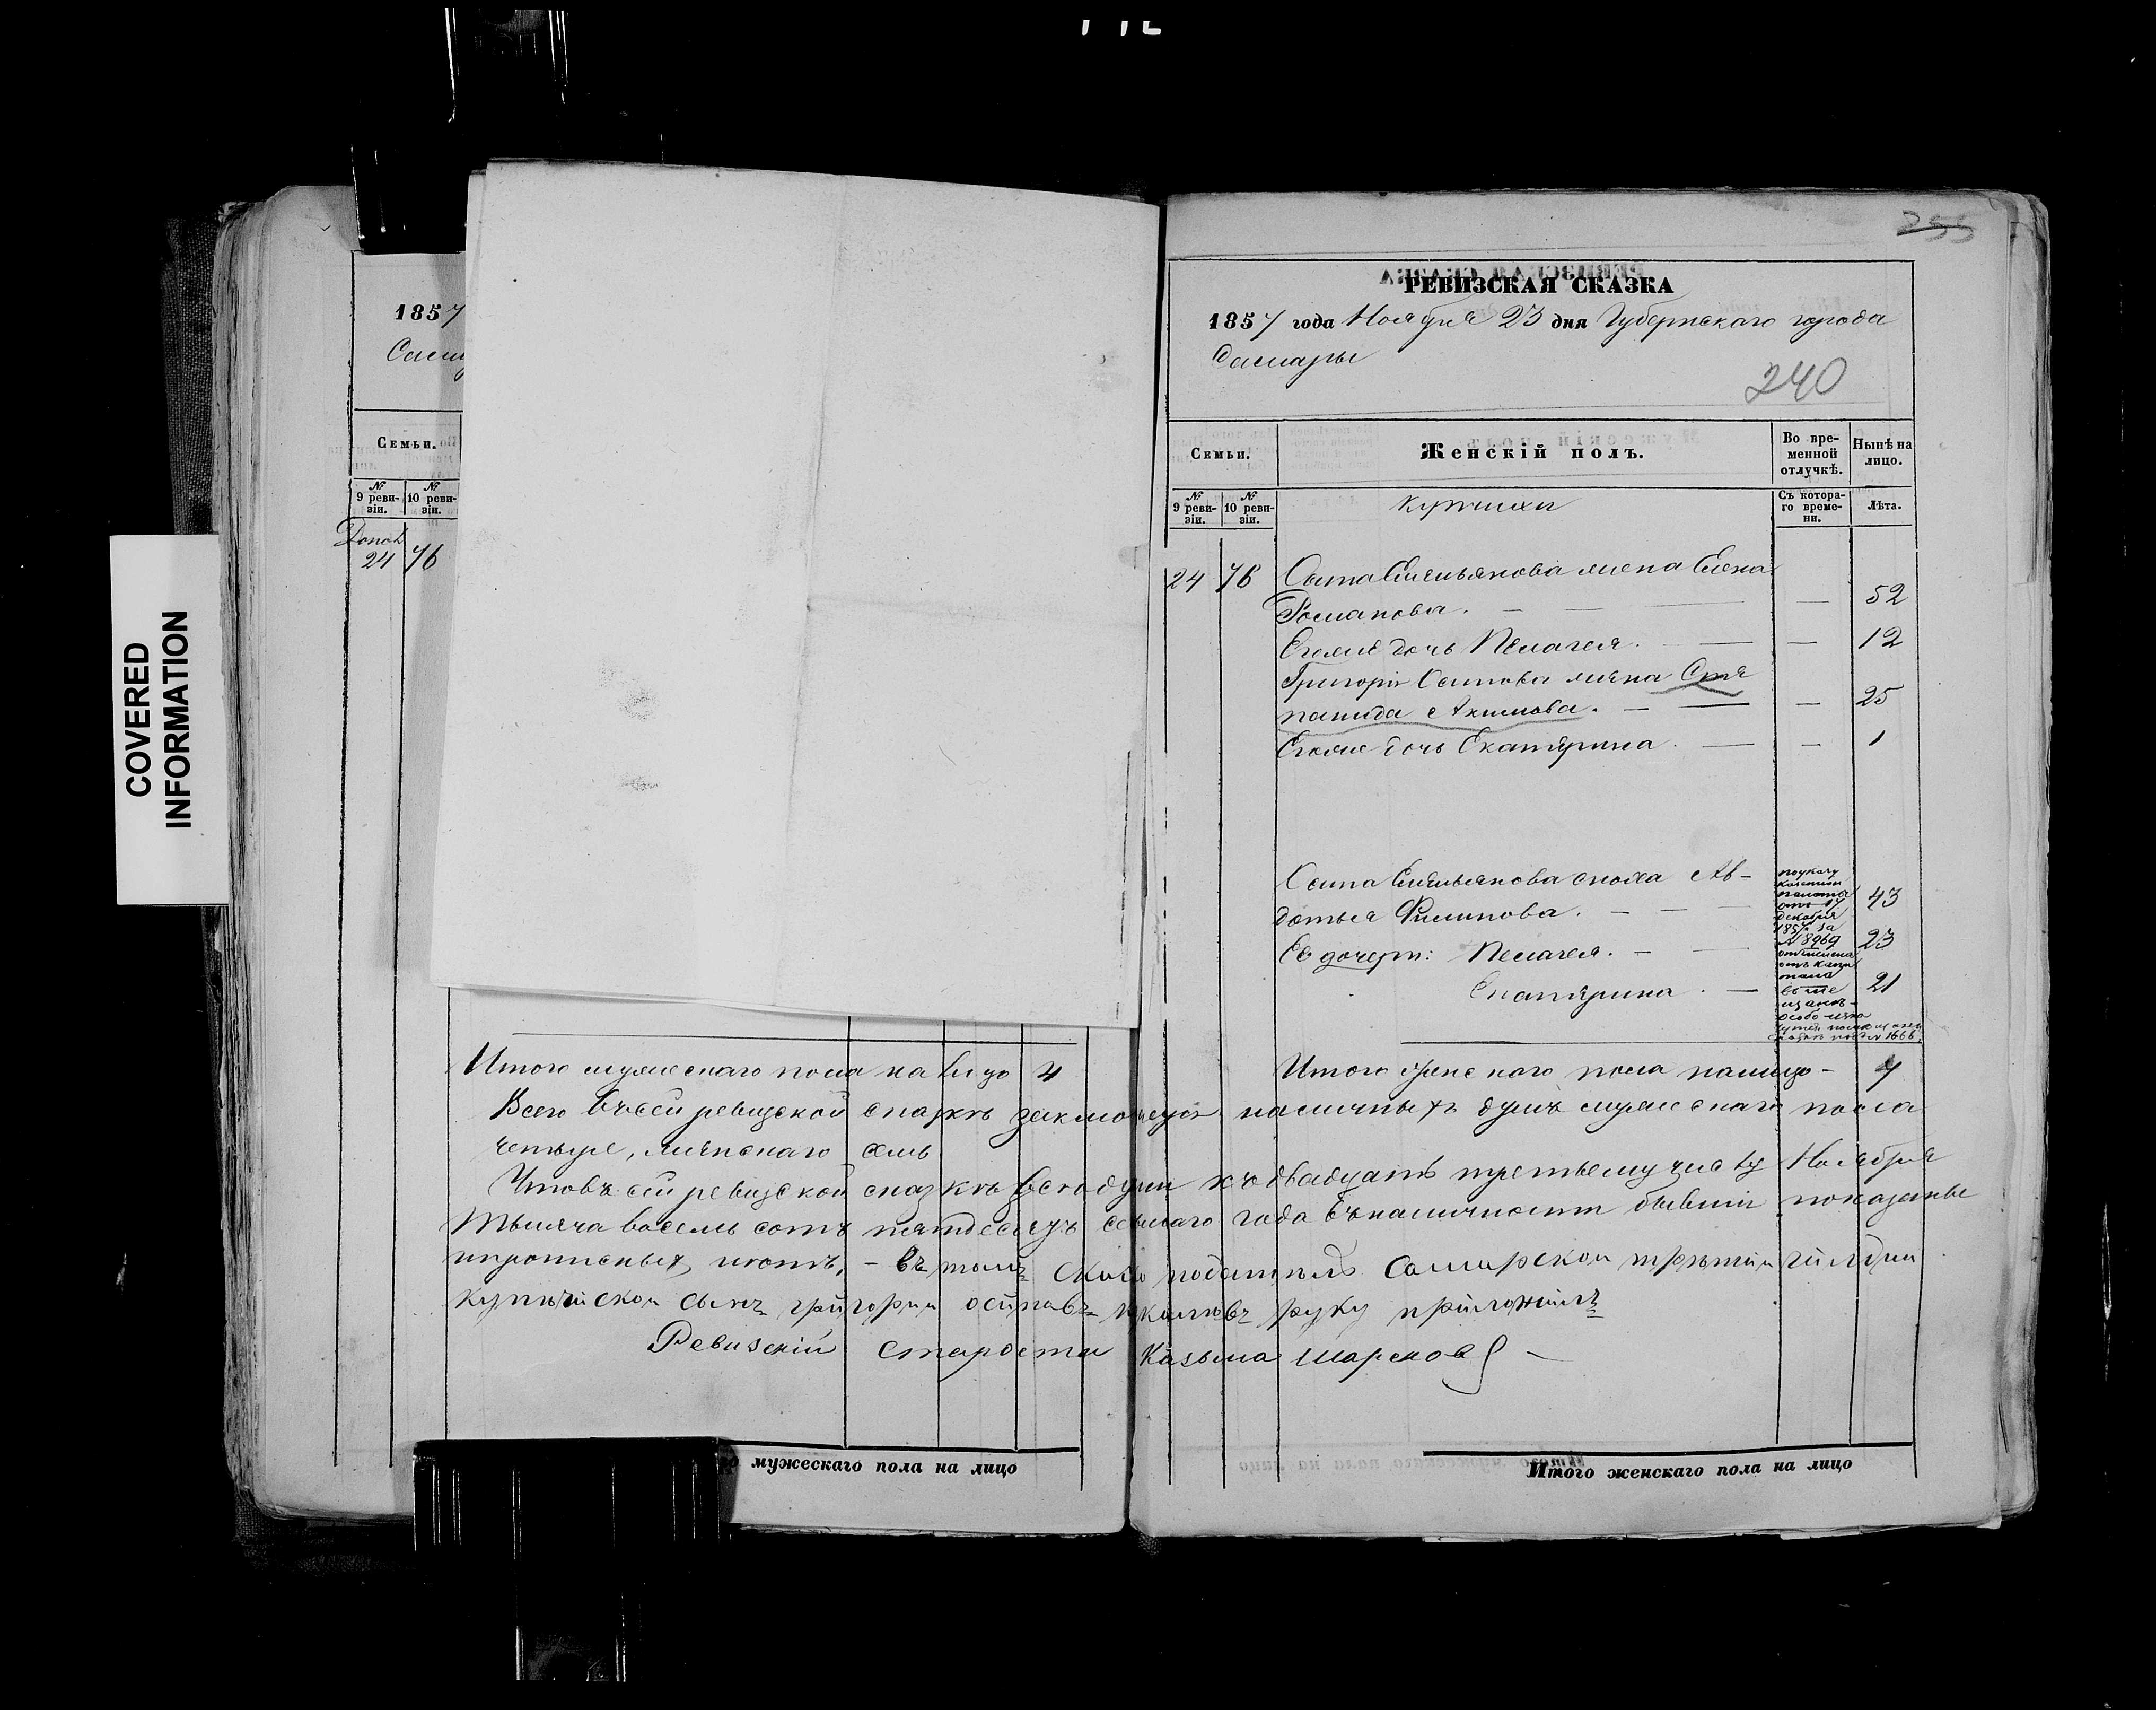 COVERED
INFORMATION
1857
Сама
Семьи.
№ 9 ревизіи. № 10 ревизіи.
Допол.
24 76
255
РЕВИЗСКАЯ СКАЗКА
1857 года Ноября 23 дня Губернскаго города
Самары
240
Семьи. Женскій полъ. Во временной отлучкѣ. Нынѣ на лицо.
№ 9 ревизіи. № 10 ревизіи. купчихи Съ котораго времени. Лѣта.
24 76 Осипа Емельянова жена Елена
Романова. — — — — 52
Его же дочь Пелагея. — — — 12
Григорія Осипова жена Сте
панида Акимова. — — — 25
Его же дочь Екатерина. — — 1
Осипа Емельянова сноха Ав-
дотья Филипова. — — — 43
Ее дочери: Пелагея. — — 23
Екатерина. — 21
по указу
казенной
палаты
отъ 17
декабря
1857 за
№ 8969
отъ капи
тала
Итого мужескаго пола на лицо 4
Итого женскаго пола на лицо — 7
Всего въ сей ревизской сказкѣ заключается наличныхъ душъ мужескаго пола
четыре, женскаго семь
Что въ сей ревизской сказкѣ всѣ души къ двадцать третьему числу Ноября
тысяча восемь сотъ пятдесятъ седьмаго года въ наличности бывшіе показаны
и прописныхъ нѣтъ, — въ томъ скаско подателъ Самарской третий гилдии
купеческой сынъ григории осиповъ руку приложилъ
Ревизскій староста Казьма
мужескаго пола на лицо
Итого женскаго пола на лицо